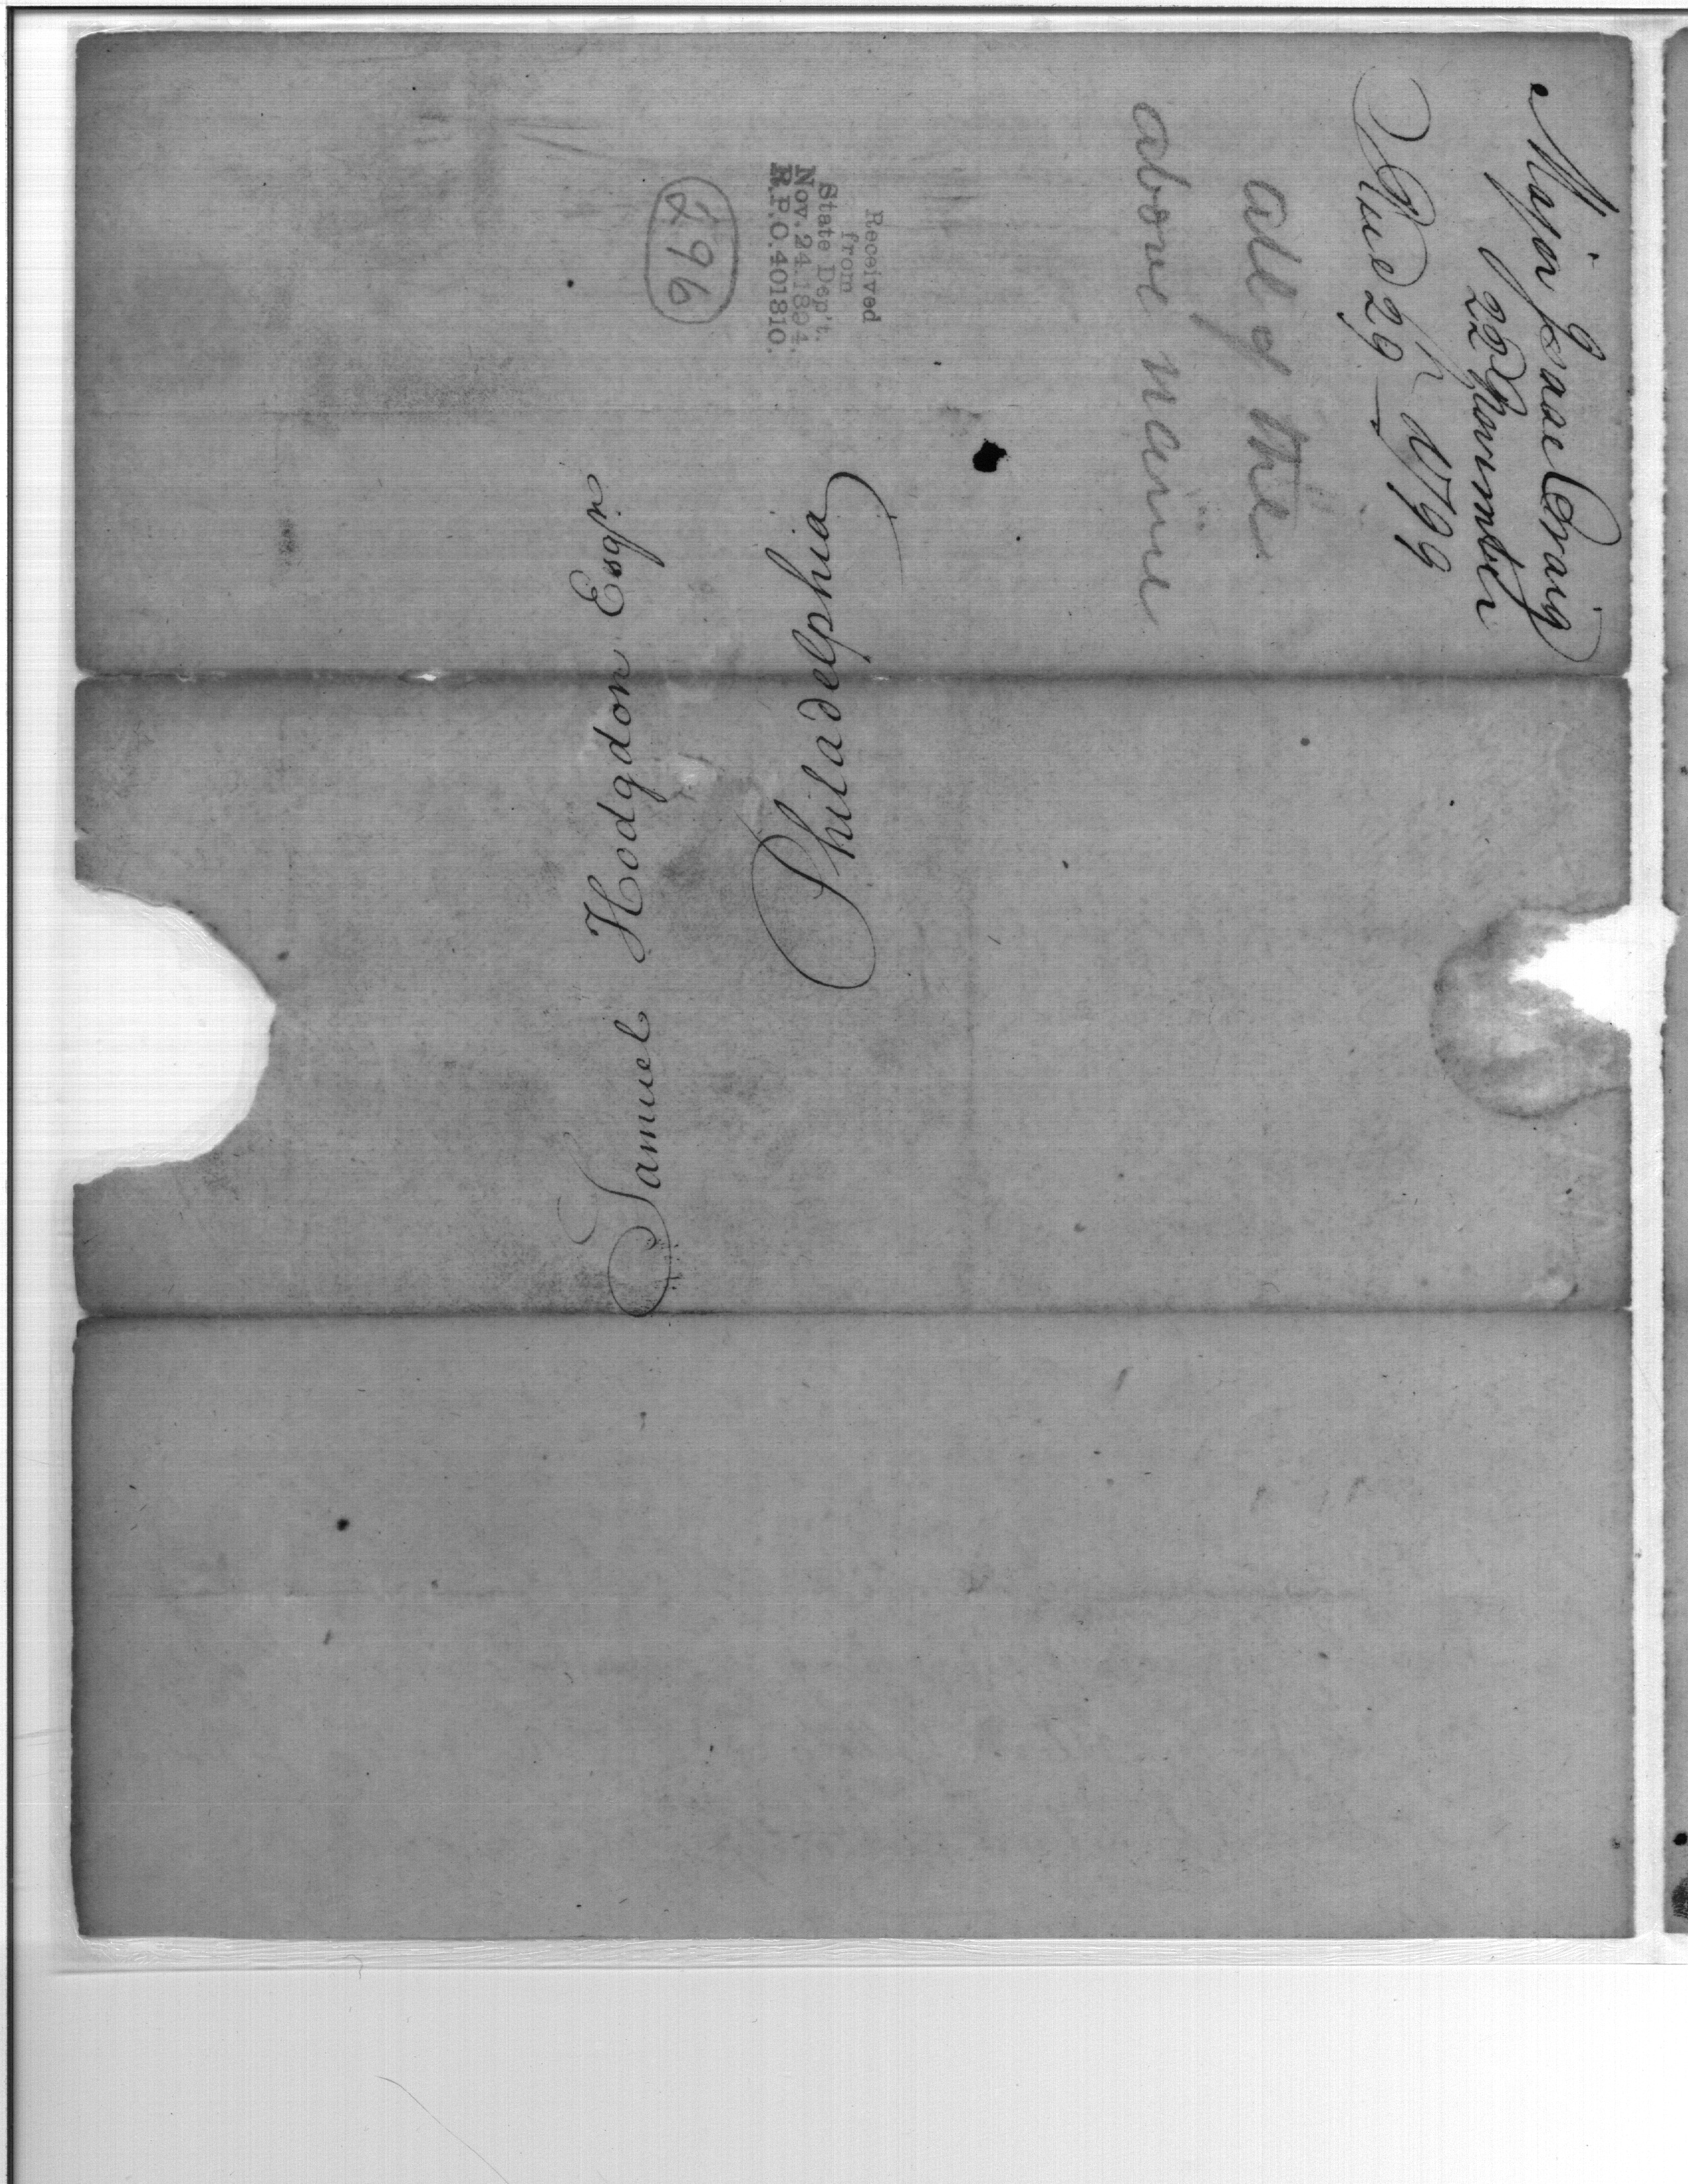 Major Isaac Craig
22d November
Recd 29th 1799
all of the
above name
Received
from
State Dep't.
Nov. 24. 1894.
R.P.O. 401810.
296
Samuel Hodgdon Esqr.
Philadelphia